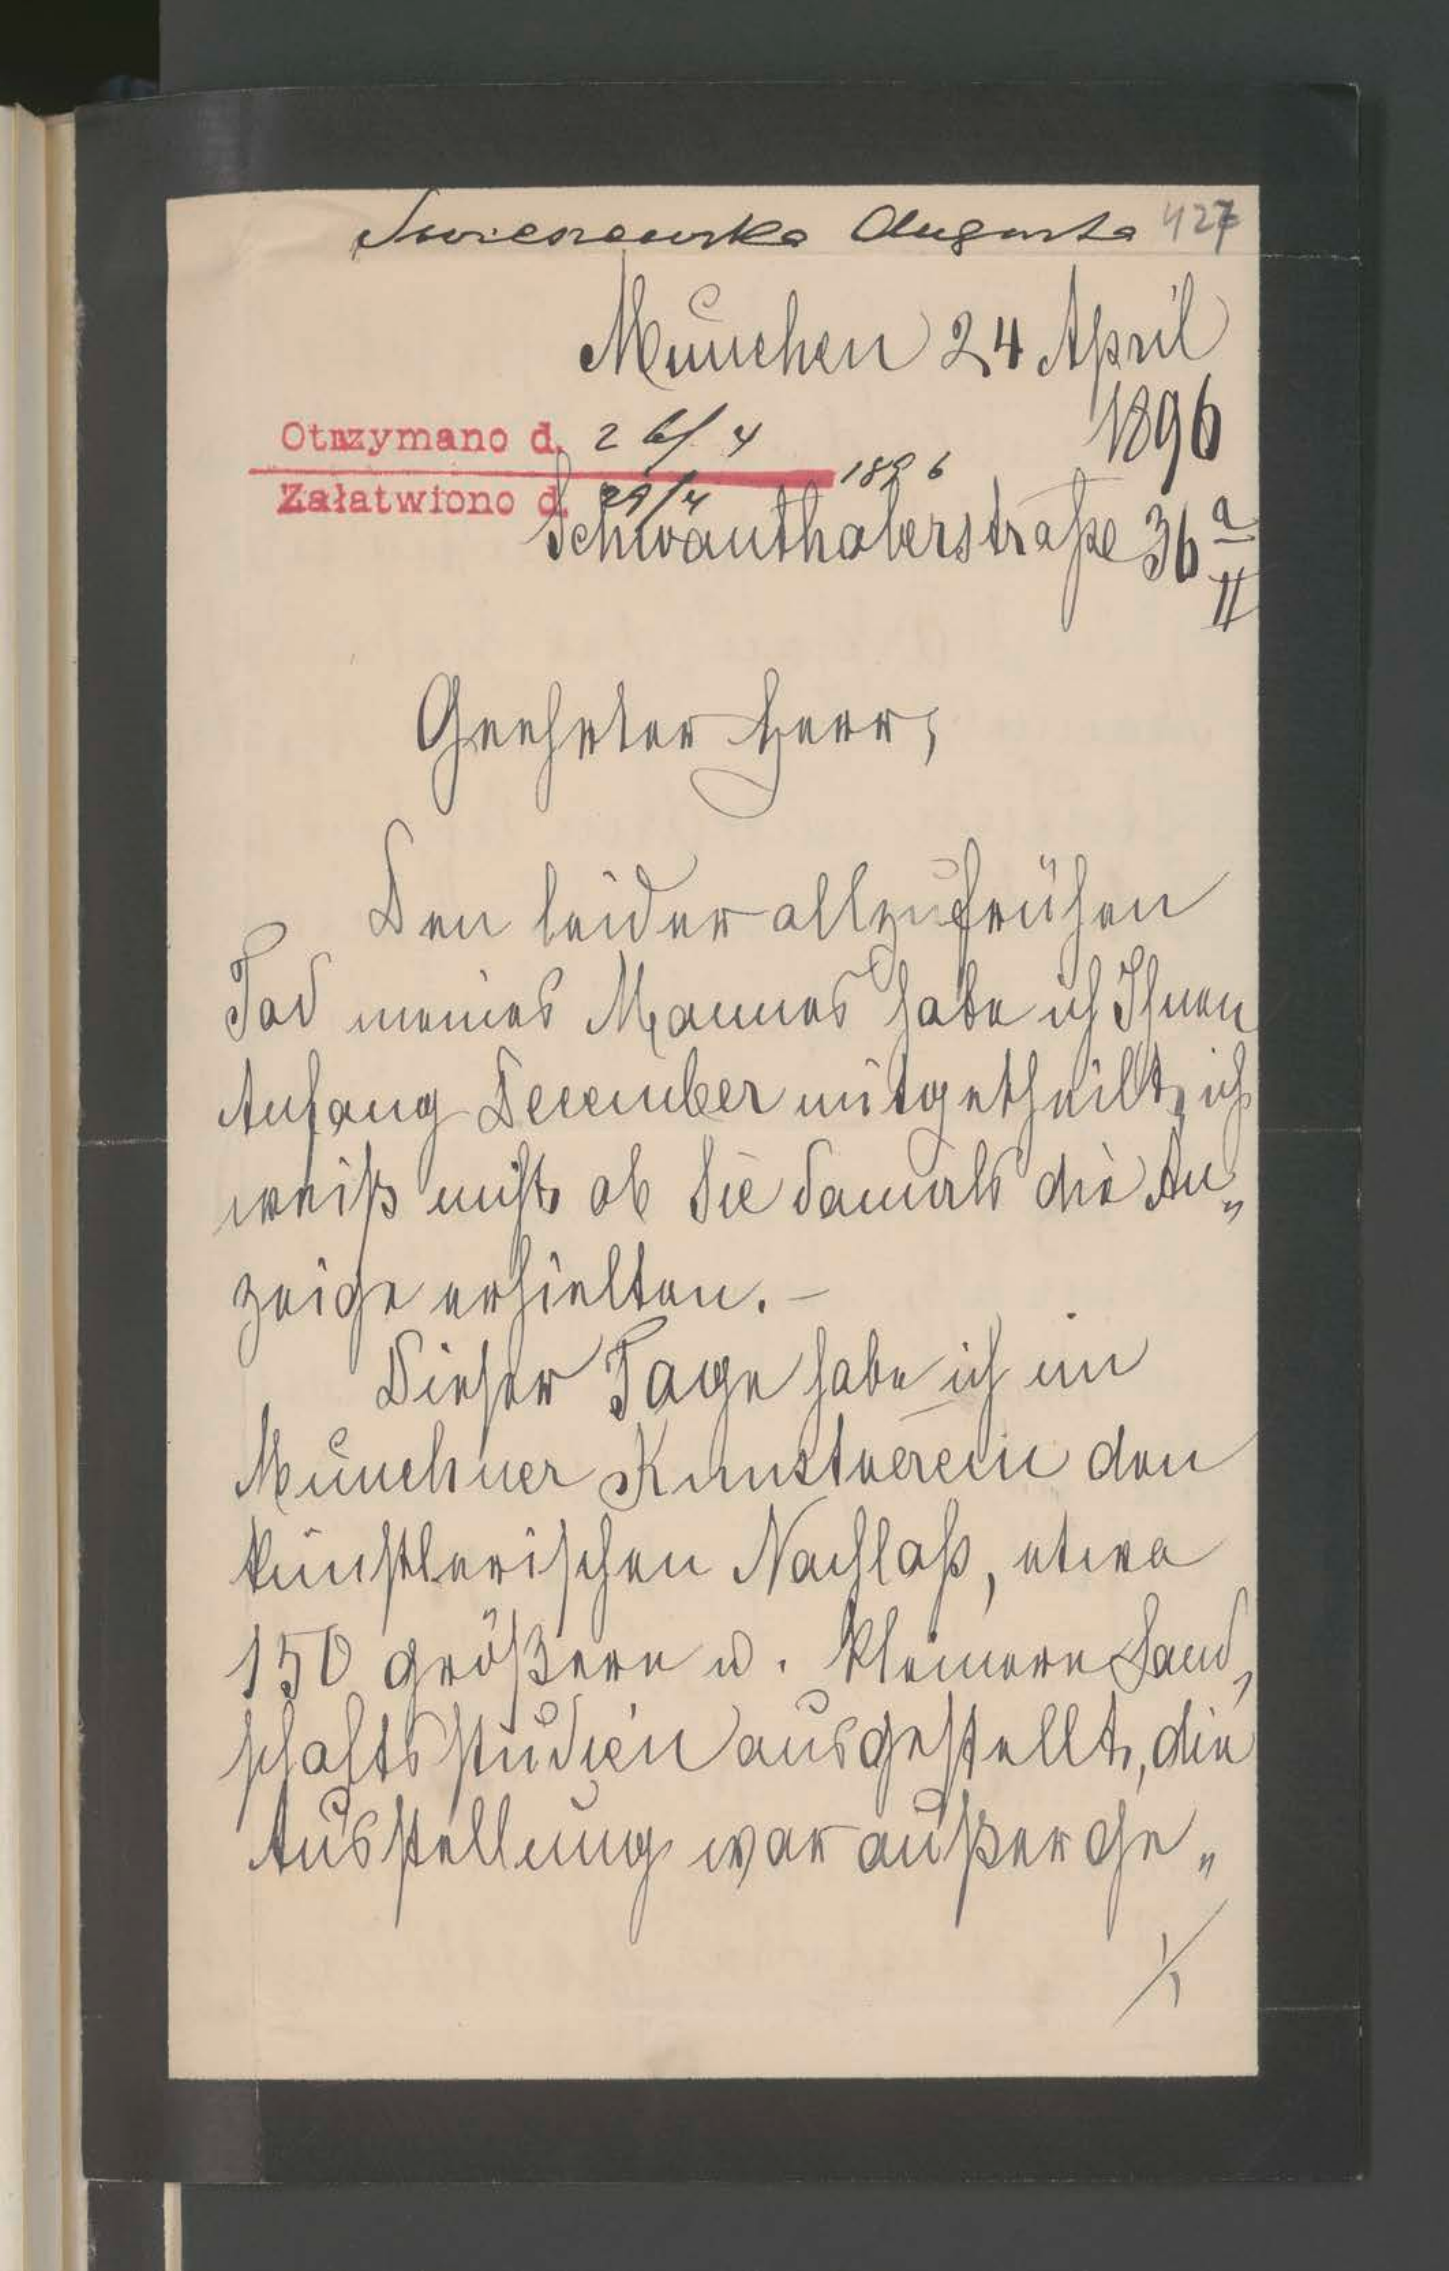 Swieszewska Augusta 427
München 24 April
1896
Otrzymano d. 26/4
1896
Załatwiono d. 29/4
Schwanthalerstraße 36 a
II
Geehrter Herr,
Den leider allzufrühen
Tod meines Mannes habe ich Ihnen
Anfang December mitgetheilt, ich
weiß nicht ob Sie damals die An„
zeige erhielten. –
Dieser Tage habe ich im
Münchner Kunstverein den
künstlerischen Nachlaß, etwa
150 größere u. kleinere Land„
schaftsstudien ausgestellt, die
Ausstellung war außerge„